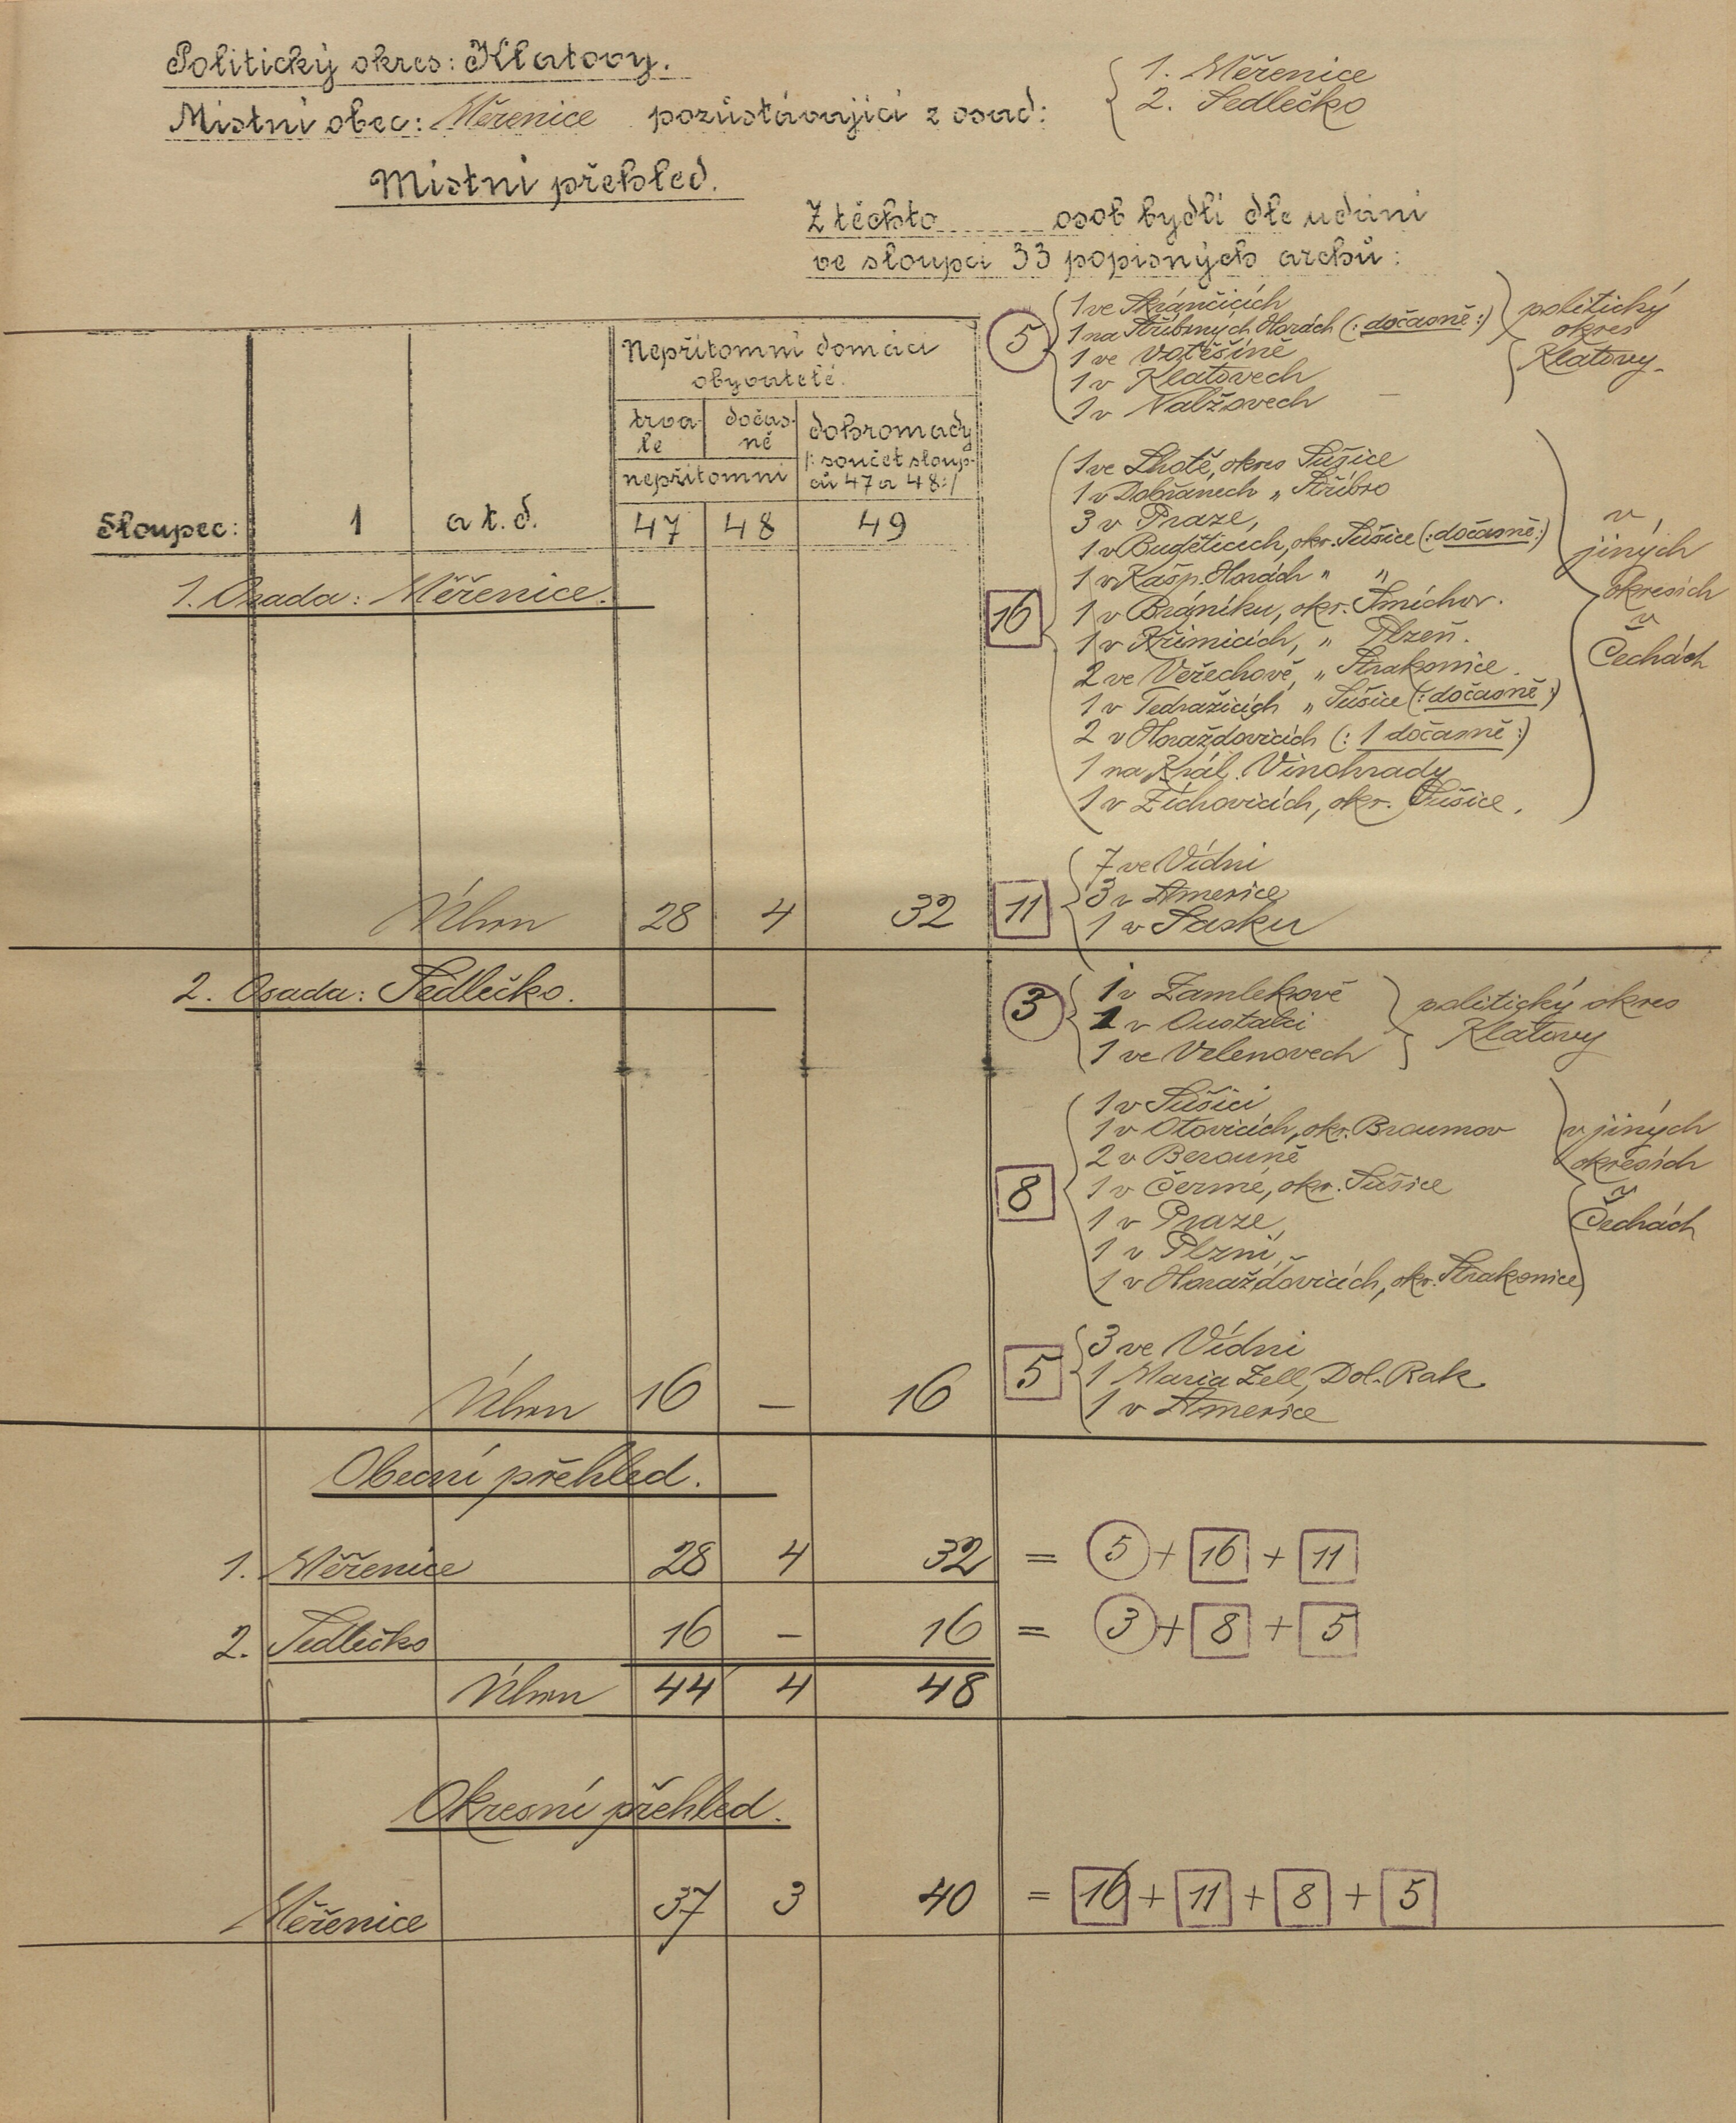 Politický okres: Klatovy.
Místní obec: Měřenice pozůstávající z osad:
1. Měřenice
2. Sedlečko
Místní přehled.
Z těchto ...... osob bydlí dle udání
ve sloupci 33 popisných archů:
Nepřítomní domácí
obyvatelé.
trva-
le
dočas-
ně
nepřítomni
dohromady
/: součet sloup-
ců 47 a 48 :/
Sloupec: 1 a t. d. 47 48 49
1. Osada: Měřenice.
5
1 ve
1 na Stříbrných Horách (: dočasně :)
1 ve Votěšíně
1 v Klatovech
1 v Nalžovech
politický
okres
Klatovy.
16
1 ve Lhotě, okres Sušice
1 v Dobřanech " Stříbro
3 v Praze,
1 v Buděticích, okr. Sušice (: dočasně :)
1 v Kašp. Horách " "
1 v Bráníku, okr. Smíchov.
1 v Křimicích, " Plzeň.
2 ve Veřechově, " Strakonice.
1 v Tedražicích " Sušice (: dočasně :)
2 v Horažďovicích (: 1 dočasně :)
1 na Král. Vinohrady
1 v Žichovicích, okr. Sušice.
v
jiných
okresích
v
Čechách
11
7 ve Vídni
3 v Americe
1 v Sasku
Úhrn 28 4 32
2. Osada: Sedlečko.
3
1 v Zamlekově
1 v Oustalči
1 ve Velenovech
politický okres
Klatovy
8
1 v Sušici
1 v Otovicích, okr. Broumov
2 v Berouně
1 v Čermé, okr. Sušice
1 v Praze,
1 v Plzni,
1 v Horažďovicích, okr. Strakonice
v jiných
okresích
v
Čechách
5
3 ve Vídni
1 Maria Zell, Dol. Rak.
1 v Americe
Úhrn 16 — 16
Obecní přehled.
1. Měřenice 28 4 32 = 5 + 16 + 11
2. Sedlečko 16 — 16 = 3 + 8 + 5
Úhrn 44 4 48
Okresní přehled.
Měřenice 37 3 40 = 16 + 11 + 8 + 5